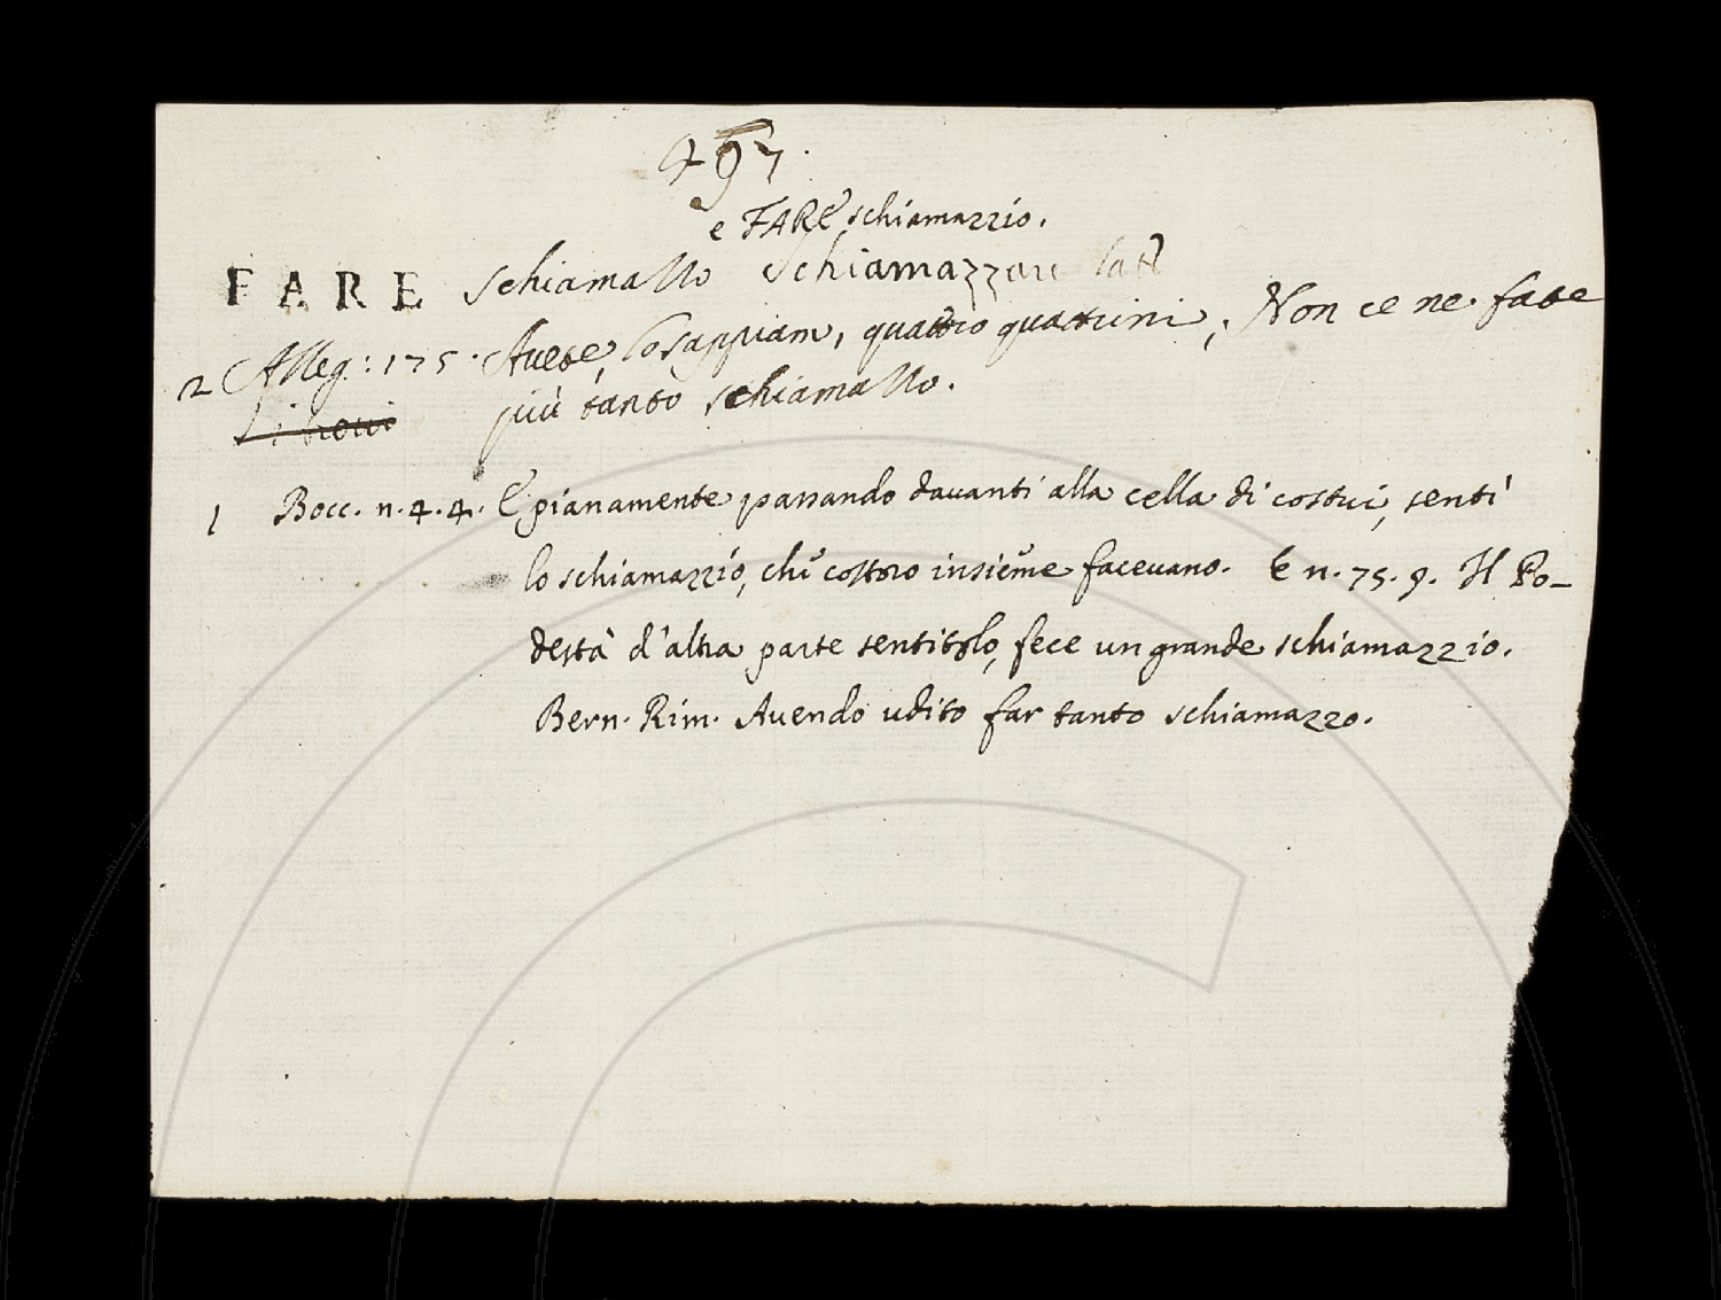 497.
e FARE schiamazzio.
FARE schiamazzo Schiamazzare lat
2 Alleg: 175. Avete, lo sappiam, quattro quattrini, Non ce ne fate
più tanto schiamazzo.
1 Bocc. n. 4. 4. E pianamente passando davanti alla cella di costui, sentì
lo schiamazzio, che costoro insieme facevano. E n. 75. 9. Il Po-
destà d'altra parte sentitolo, fece un grande schiamazzio.
Bern. Rim. Avendo udito far tanto schiamazzo.